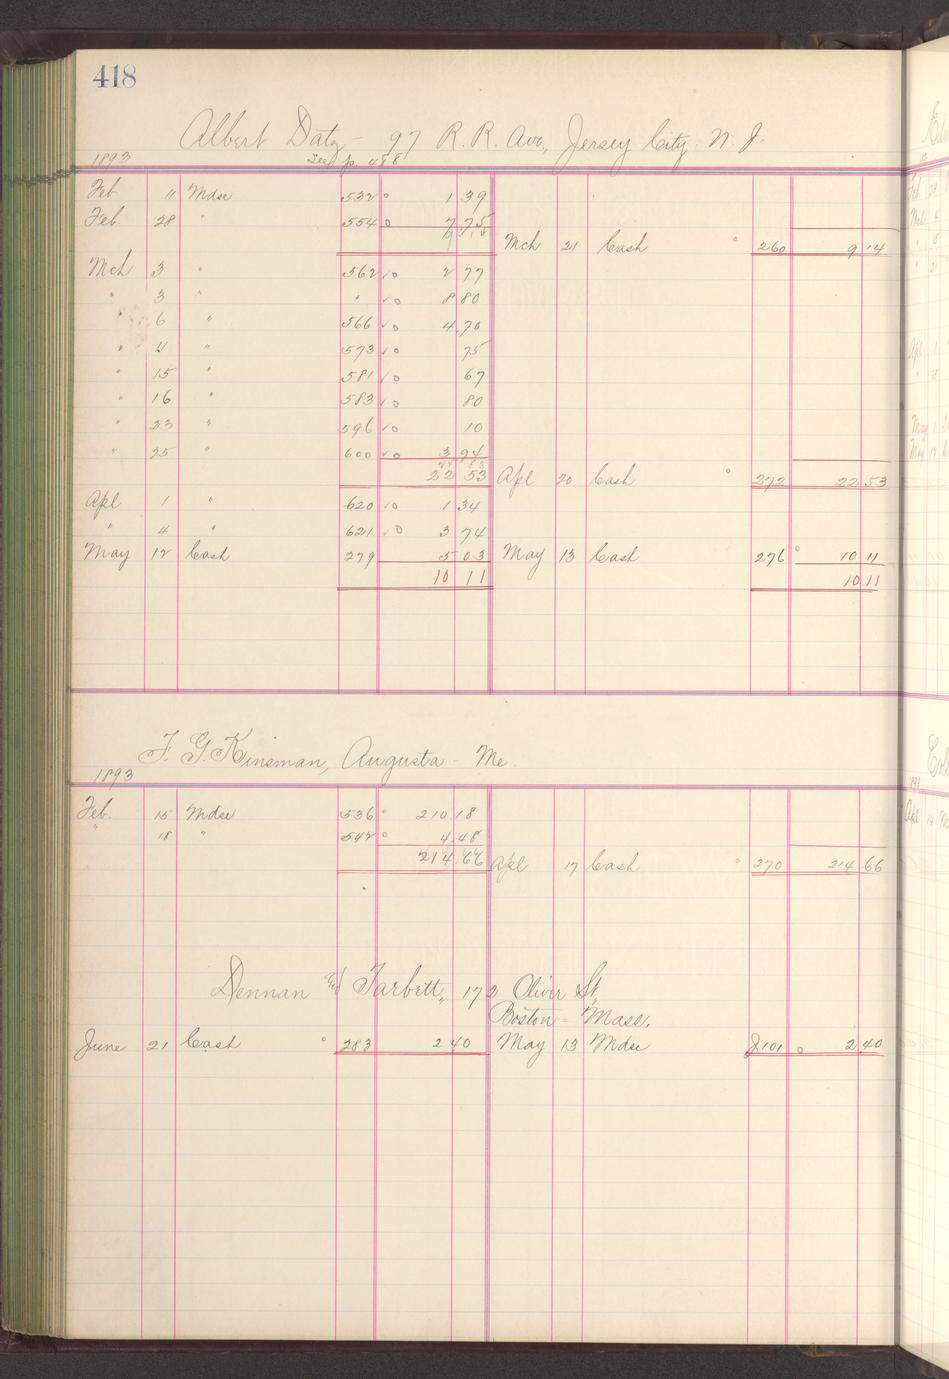 418
Albert Datz - 97 R. R. Ave., Jersey City. N. J.
1893 See p. 488
Feb 11 Mdse 532 1 39
Feb. 28 " 554 7 75
Mch 21 Cash 260 9 14
Mch 3 " 562 2 77
" 3 " " 8 80
" 6 " 566 4 70
" 11 " 573 75
" 15 " 581 67
" 16 " 583 80
" 23 " 596 10
" 25 " 600 3 94
22 53 Apl 20 Cash 272 22 53
Apl 1 " 620 1 34
" 4 " 621 3 74
May 12 Cash 279 5 03 May 13 Cash 276 10 11
10 11 10 11
F. G. Kinsman, Augusta - Me.
1893
Feb. 15 Mdse 536 210 18
" 18 " 542 4 48
214 66 Apl 17 Cash 270 214 66
Dennan Tarbitt, 172 Oliver St,
Boston - Mass.
June 21 Cash 283 2 40 May 13 Mdse J101 2 40